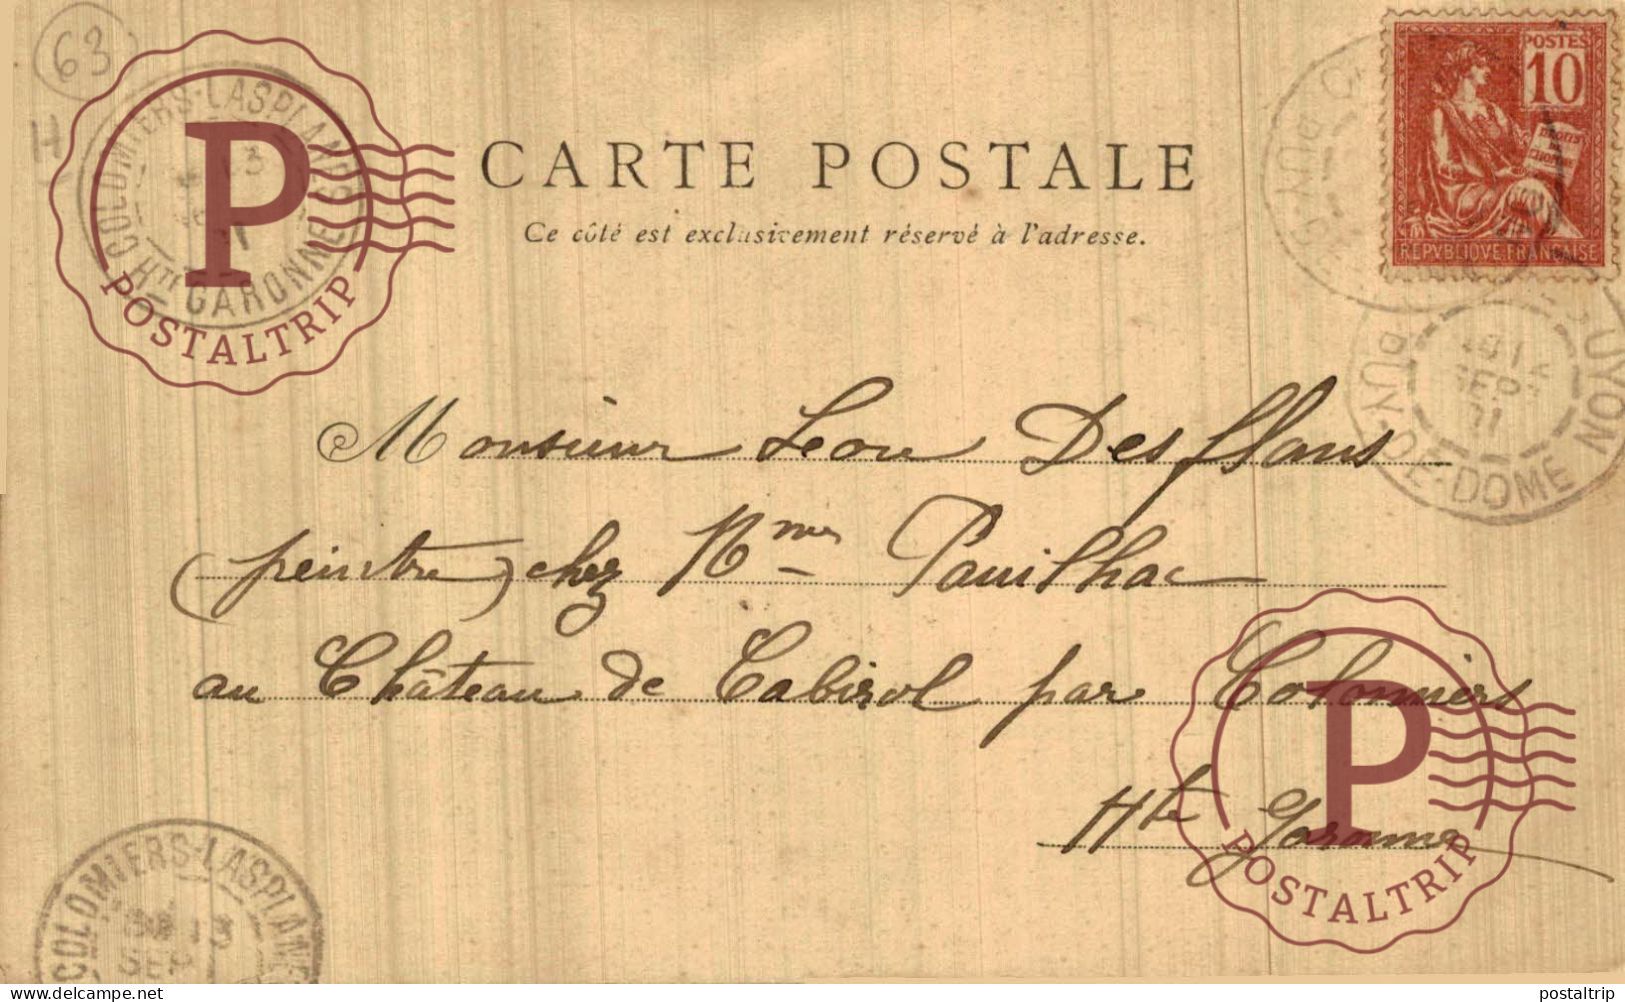 63
H
COLOMIERS-LASPLANES
Hte GARONNE
P
POSTALTRIP
CARTE POSTALE
Ce côté est exclusivement réservé à l'adresse.
POSTES
10
DROITS DE L'HOMME
REPVBLIQVE FRANÇAISE
PUY-DE-DOME
SEPT
Monsieur Leon Desflans
(peintre) chez Mme Pauilhac
au Château de Cabirol par Colomiers
Hte Garonne
P
POSTALTRIP
COLOMIERS-LASPLANES
13
SEPT
postaltrip
postaltrip